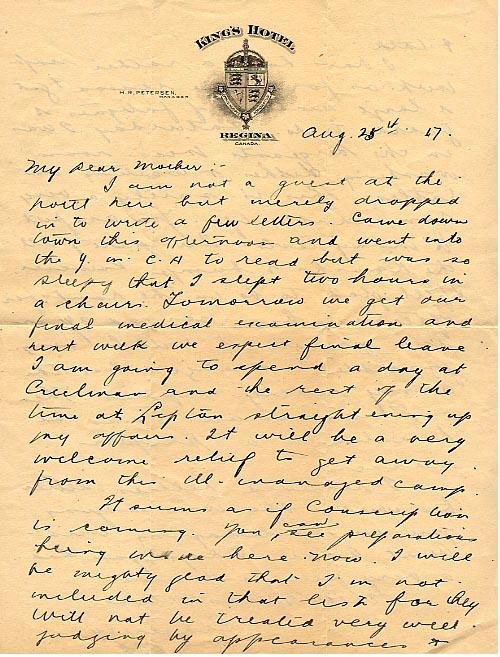 KING'S HOTEL
H. R. PETERSEN,
MANAGER
REGINA
CANADA.
Aug. 25th. 17.
My Dear Mother :-
I am not a guest at the
hotel here but merely dropped
in to write a few letters. Came down
town this afternoon and went into
the Y. M. C. A to read but was so
sleepy that I slept two hours in
a chair. Tomorrow we get our
final medical examination and
next week we expect final leave
I am going to spend a day at
Creelman and the rest of the
time at Lipton straightening up
my affairs. It will be a very
welcome relief to get away
from this ill-managed camp.
It seems as if Conscription
is coming. You can see preparations
being made here now. I will
be mighty glad that I'm not
included in that list for they
will not be treated very well
judging by appearances